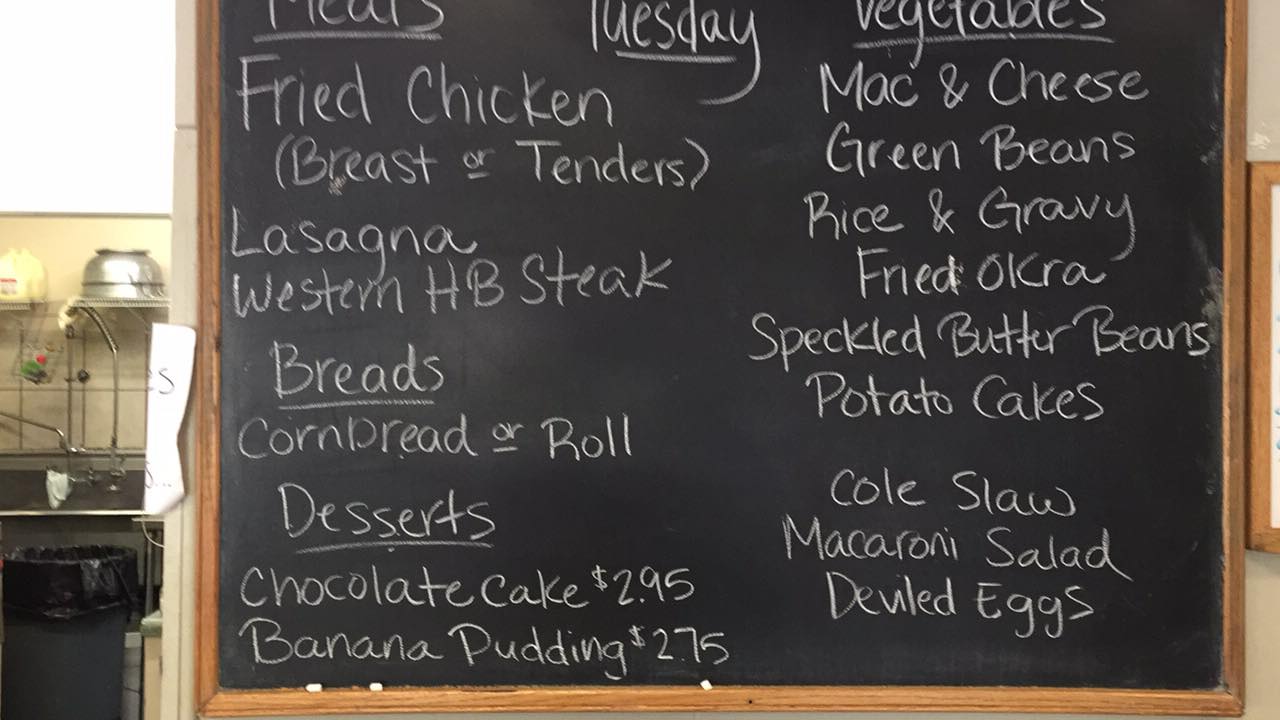 Meats
Fried Chicken
(Breast or Tenders)
Lasagna
Western HB Steak
Breads
Cornbread or Roll
Desserts
Chocolate Cake $2.95
Banana Pudding $2.75
Tuesday
Vegetables
Mac & Cheese
Green Beans
Rice & Gravy
Fried Okra
Speckled Butter Beans
Potato Cakes
Cole Slaw
Macaroni Salad
Deviled Eggs